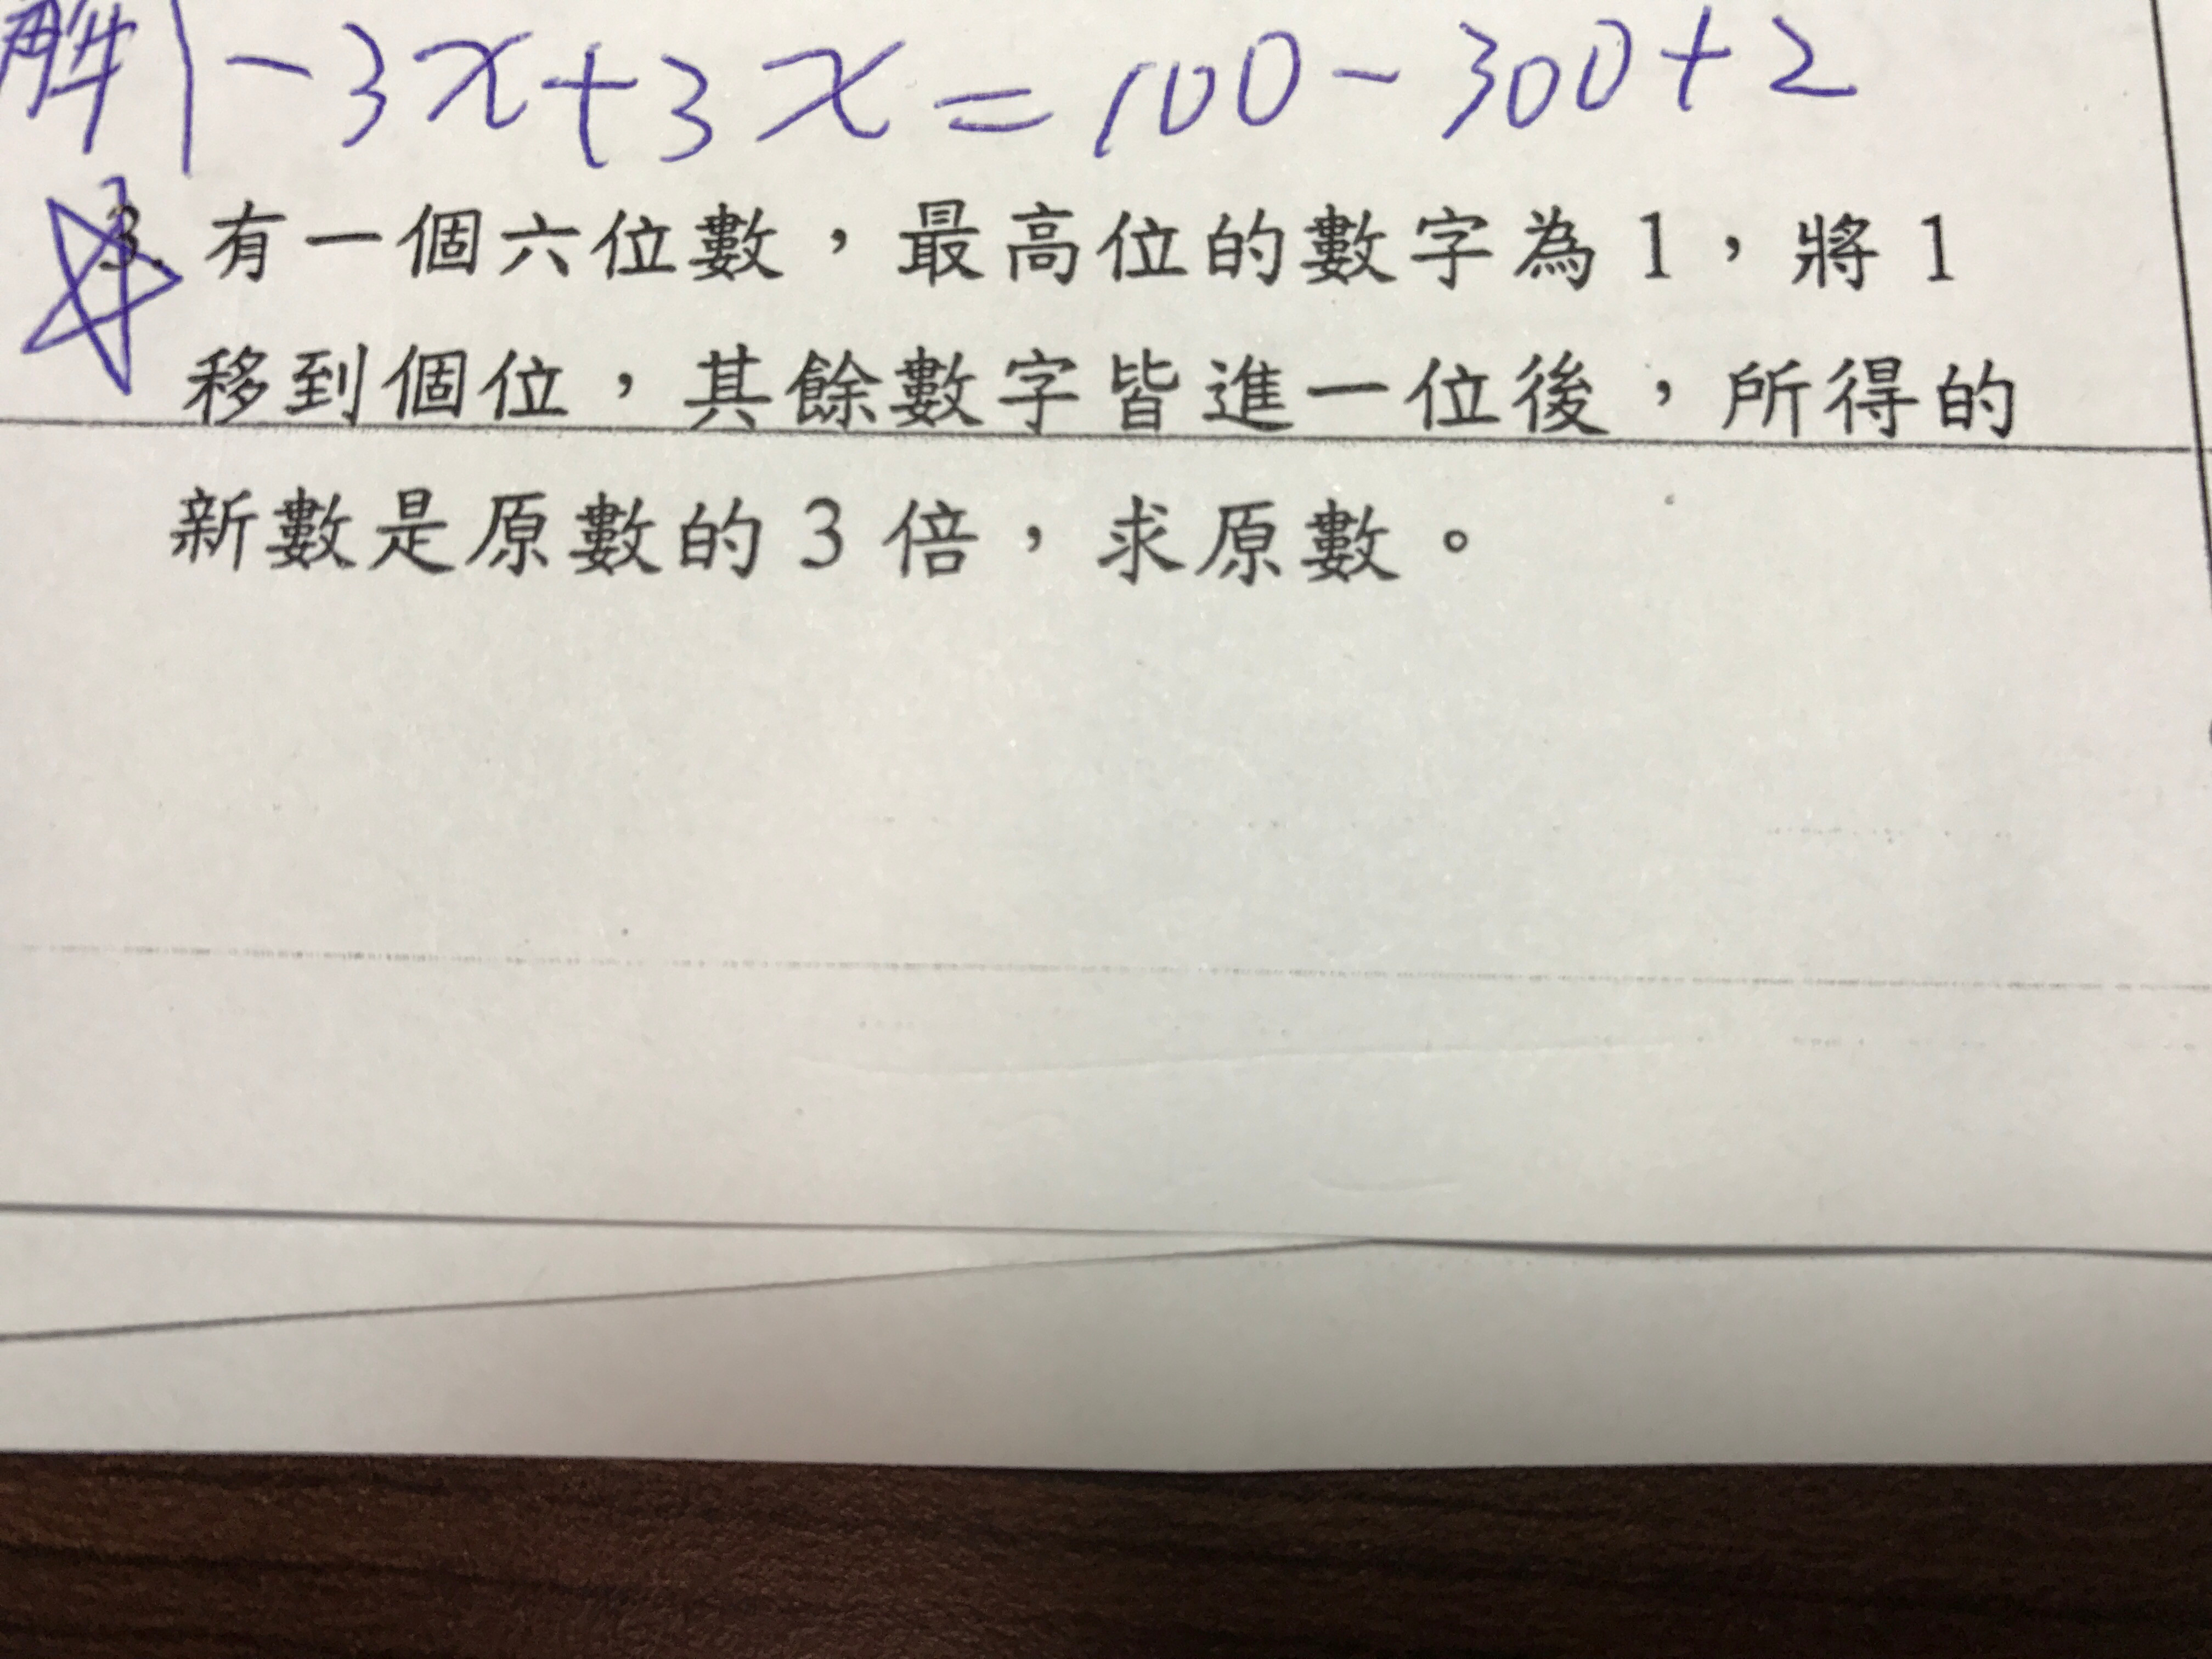 解 -3x+3x=100-300+2
3. 有一個六位數，最高位的數字為1，將1
移到個位，其餘數字皆進一位後，所得的
新數是原數的3倍，求原數。